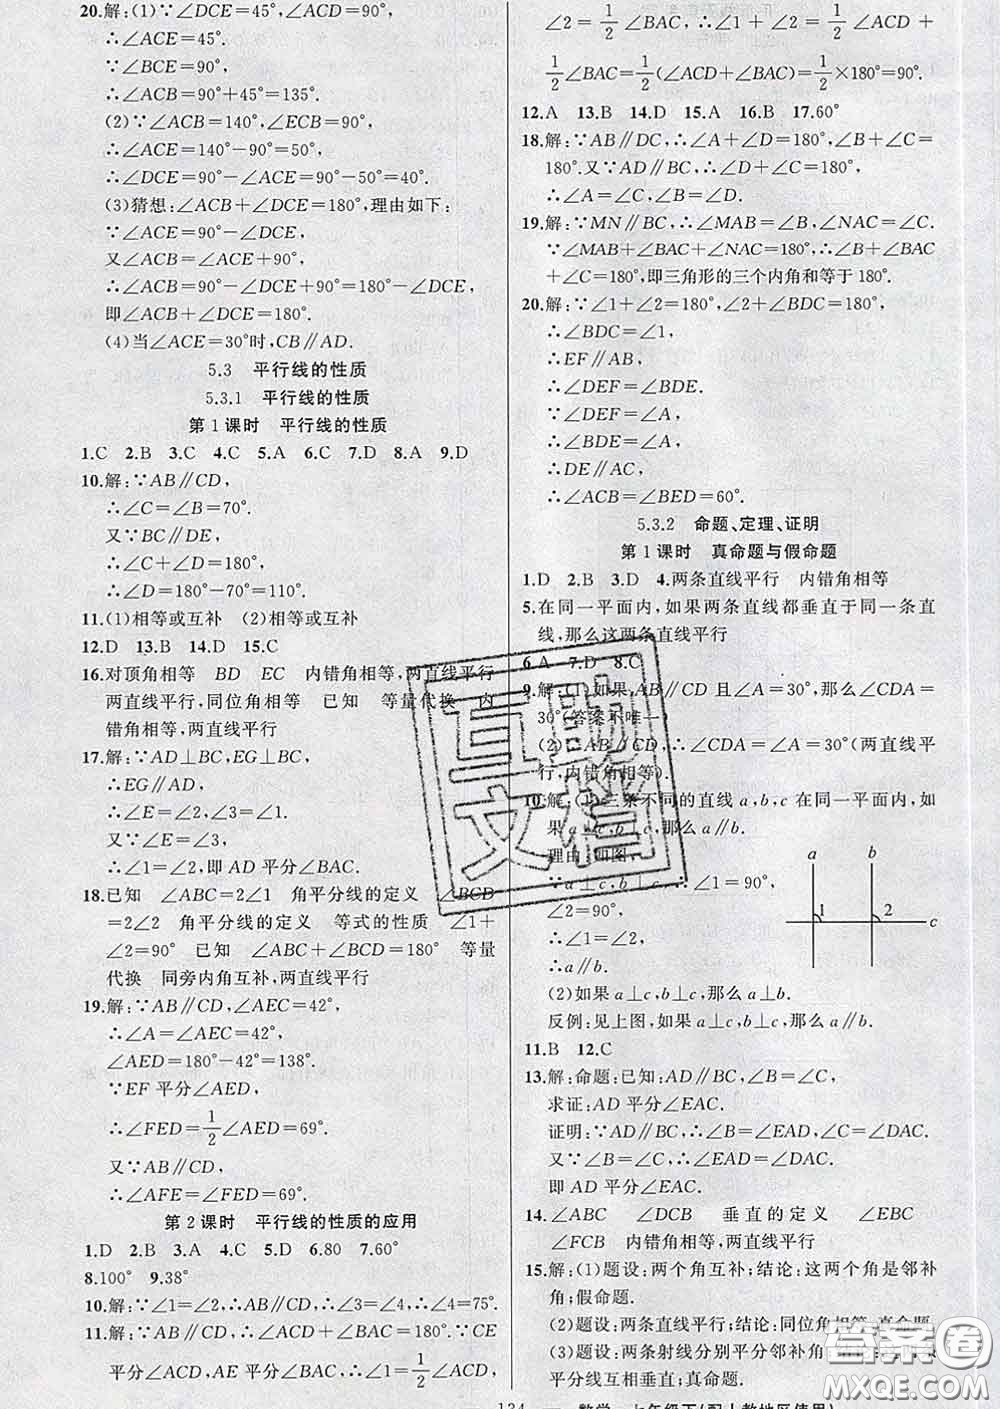 20.解:(1)∵∠DCE=45°,∠ACD=90°,
∴∠ACE=45°.
∵∠BCE=90°,
∴∠ACB=90°+45°=135°.
(2)∵∠ACB=140°,∠ECB=90°,
∴∠ACE=140°-90°=50°,
∴∠DCE=90°-∠ACE=90°-50°=40°.
(3)猜想:∠ACB+∠DCE=180°,理由如下:
∵∠ACE=90°-∠DCE,
又∠ACB=∠ACE+90°,
∴∠ACB=90°-∠DCE+90°=180°-∠DCE,
即∠ACB+∠DCE=180°.
(4)当∠ACE=30°时,CB∥AD.
5.3 平行线的性质
5.3.1 平行线的性质
第1课时 平行线的性质
1.C 2.B 3.C 4.C 5.A 6.C 7.D 8.A 9.D
10.解:∵AB∥CD,
∴∠C=∠B=70°.
又∵BC∥DE,
∴∠C+∠D=180°,
∴∠D=180°-70°=110°.
11.(1)相等或互补 (2)相等或互补
12.D 13.B 14.D 15.C
16.对顶角相等 BD EC 内错角相等,两直线平行
两直线平行,同位角相等 已知 等量代换 内
错角相等,两直线平行
17.解:∵AD⊥BC,EG⊥BC,
∴EG∥AD,
∴∠E=∠2,∠1=∠3.
又∵∠E=∠3,
∴∠1=∠2,即AD平分∠BAC.
18.已知 ∠ABC=2∠1 角平分线的定义 ∠BCD
=2∠2 角平分线的定义 等式的性质 ∠1+
∠2=90° 已知 ∠ABC+∠BCD=180° 等量
代换 同旁内角互补,两直线平行
19.解:∵AB∥CD,∠AEC=42°,
∴∠A=∠AEC=42°,
∠AED=180°-42°=138°.
∵EF平分∠AED,
∴∠FED=1/2∠AED=69°.
又∵AB∥CD,
∴∠AFE=∠FED=69°.
第2课时 平行线的性质的应用
1.D 2.B 3.A 4.C 5.D 6.80 7.60°
8.100° 9.38°
10.解:∵∠1=∠2,∴AB∥CD,∴∠3=∠4,∴∠4=75°.
11.解:∵AB∥CD,∴∠ACD+∠BAC=180°.∵CE
平分∠ACD,AE平分∠BAC,∴∠1=1/2∠ACD,
∠2=1/2∠BAC,∴∠1+∠2=1/2∠ACD+
1/2∠BAC=1/2(∠ACD+∠BAC)=1/2×180°=90°.
12.A 13.B 14.D 15.A 16.B 17.60°
18.解:∵AB∥DC,∴∠A+∠D=180°,∠B+∠C=
180°.又∵AD∥BC,∴∠D+∠C=180°,
∴∠A=∠C,∠B=∠D.
19.解:∵MN∥BC,∴∠MAB=∠B,∠NAC=∠C.
∵∠MAB+∠BAC+∠NAC=180°,∴∠B+∠BAC
+∠C=180°,即三角形的三个内角和等于180°.
20.解:∵∠1+∠2=180°,∠2+∠BDC=180°,
∴∠BDC=∠1,
∴EF∥AB,
∴∠DEF=∠BDE.
∵∠DEF=∠A,
∴∠BDE=∠A,
∴DE∥AC,
∴∠ACB=∠BED=60°.
5.3.2 命题、定理、证明
第1课时 真命题与假命题
1.D 2.B 3.D 4.两条直线平行 内错角相等
5.在同一平面内,如果两条直线都垂直于同一条直
线,那么这两条直线平行
6.A 7.D 8.C
9.解:(1)如果AB∥CD且∠A=30°,那么∠CDA=
30°(答案不唯一).
(2)∵AB∥CD,∴∠CDA=∠A=30°(两直线平
行,内错角相等).
10.解:(1)三条不同的直线a,b,c在同一平面内,如
果a⊥c,b⊥c,那么a∥b.
理由:如图,
∵a⊥c,b⊥c,∴∠1=90°,
∠2=90°,
∴∠1=∠2,
∴a∥b.
(2)如果a⊥c,b⊥c,那么a⊥b.
反例:见上图,如果a⊥c,b⊥c,那么a∥b.
a b
1 2 c
11.B 12.C
13.解:命题:已知:AD∥BC,∠B=∠C,
求证:AD平分∠EAC.
证明:∵AD∥BC,∴∠B=∠EAD,∠C=∠DAC.
又∵∠B=∠C,∴∠EAD=∠DAC.
即AD平分∠EAC.
14.∠ABC ∠DCB 垂直的定义 ∠EBC
∠FCB 内错角相等,两直线平行
15.解:(1)题设:两个角互补;结论:这两个角是邻补
角;假命题.
(2)题设:两条直线平行;结论:同位角相等;真命题.
(3)题设:两条射线分别平分邻补角
平分线互相垂直;真命题.
互助
文档
答案圈